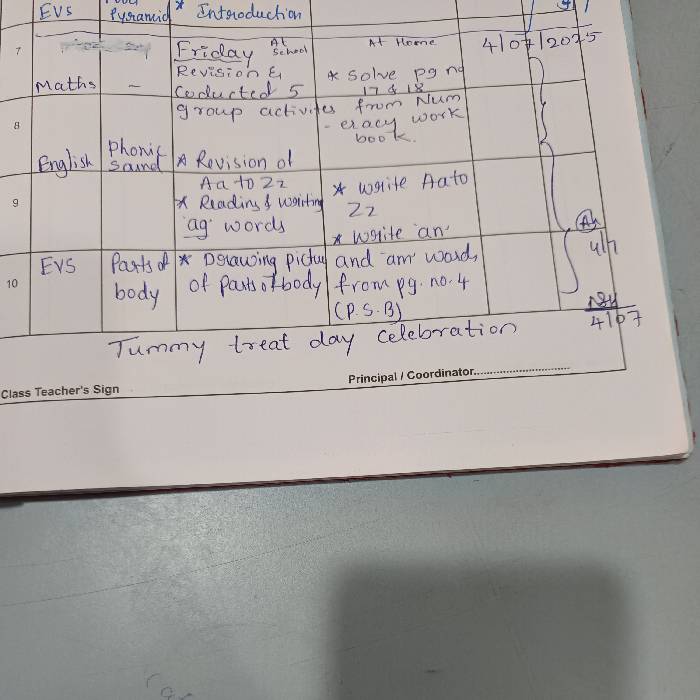 EVS Pyramid * Introduction
7 Friday At School At Home 4/07/2025
Maths - Revision & * Solve pg no
Coducted 5 17 & 18
8 group activites from Num
- eracy work
book.
English Phonic Sound * Revision of
Aa to Zz * write Aa to
9 * Reading & writing Zz
'ag' words * write 'an'
10 EVS Parts of * Drawing pictu and 'am' words
body of Parts of body from pg. no. 4
(P.S.B)
4/7
4/07
Tummy treat day celebration
Class Teacher's Sign Principal / Coordinator..............................